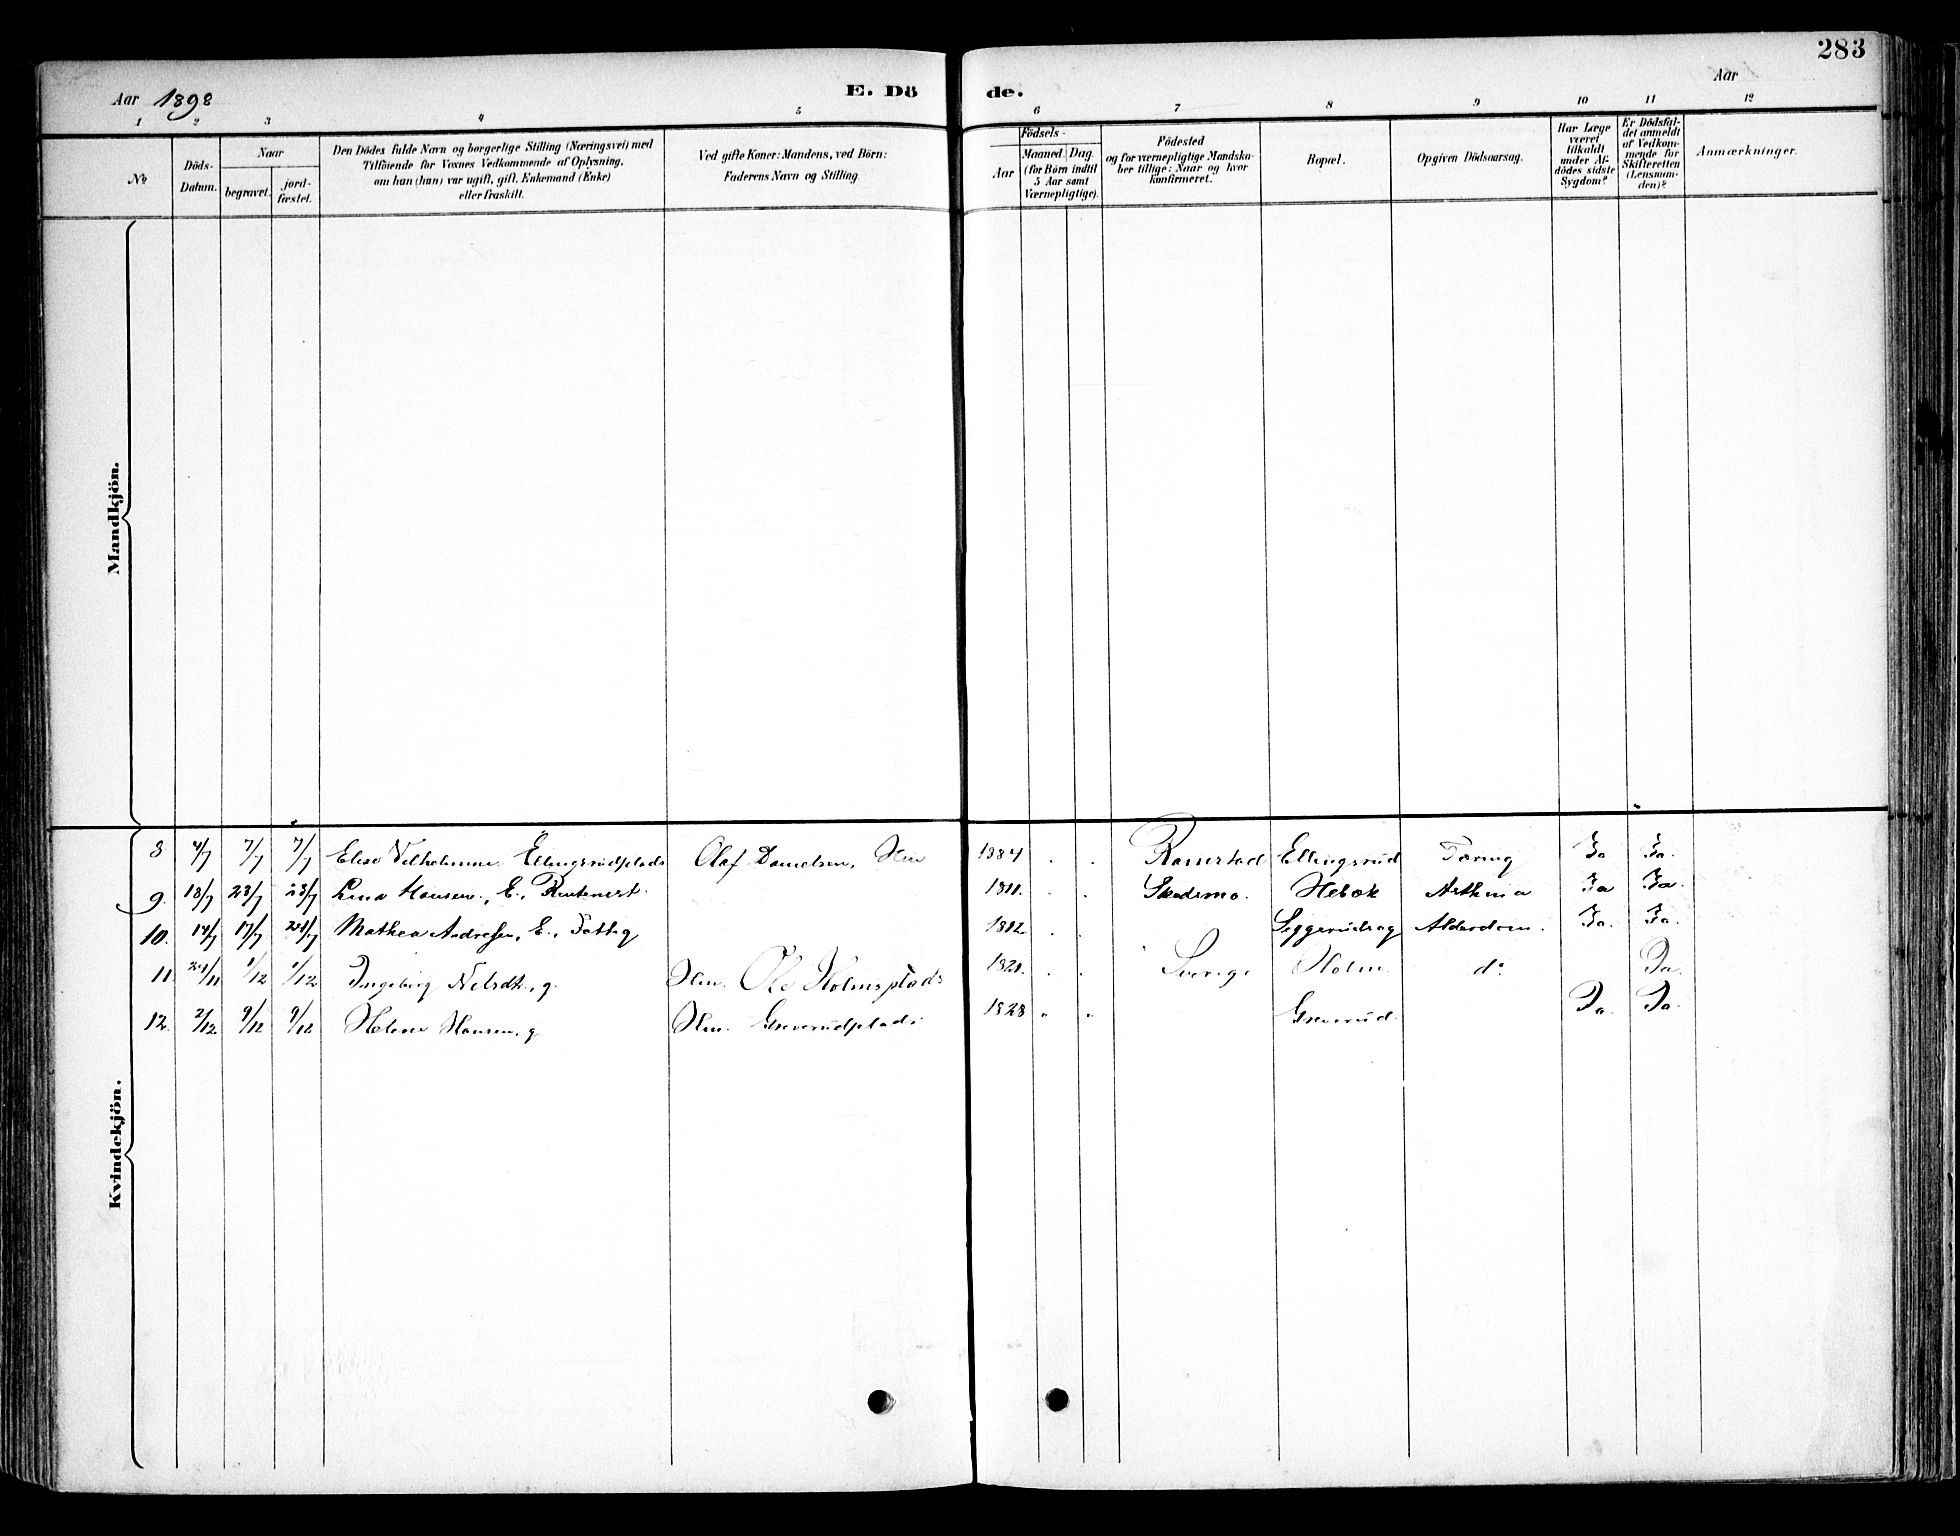 283
Aar 1898
E. Dö de.
Aar
1 2 3 4 5 6 7 8 9 10 11 12
№
Döds-
Datum.
Naar
begravet.
jord-
fæstet.
Den Dödes fulde Navn og borgerlige Stilling (Næringsvei) med
Tilföiende for Voxnes Vedkommende af Oplysning,
om han (hun) var ugift, gift, Enkemand (Enke)
eller fraskilt.
Ved gifte Koner: Mandens, ved Börn:
Faderens Navn og Stilling.
Födsels-
Aar
Maaned. Dag.
(for Börn indtil
5 Aar samt
Værnepligtige).
Födested
og for værnepligtige Mandska-
ber tillige: Naar og hvor
konfirmeret.
Bopæl.
Opgiven Dödsaarsag.
Har Læge
været
tilkaldt
under Af-
dödes sidste
Sygdom?
Er Dödsfal-
det anmeldt
af Vedkom-
mende for
Skifteretten
(Lensman-
den)?
Anmærkninger.
Mandkjön.
Kvindekjön.
8 4/7 7/7 7/7 Elise Vilhelmine Ellingsrudplads Olaf Danielsen, Hm 1884 . . Ramstad Ellingsrud Tæring Ja Ja.
9. 18/7 23/7 23/7 Lina Hansen, E., 1811. . Skedsmo. Hebæk Asthma Ja Ja.
10. 14/7 17/7 24/7 Mathea Andresen, E., Fattig 1812 . . Siggerudsag Alderdom. Ja. Ja.
11. 24/11 1/12 1/12 Ingeborg g. Hm. Ole Holmsplads 1821. . . Sverige Holm do Ja.
12. 2/12 9/12 9/12 Helene Hansen, g Hm. Greverudplads 1828 " " Greverud. Ja. Ja.